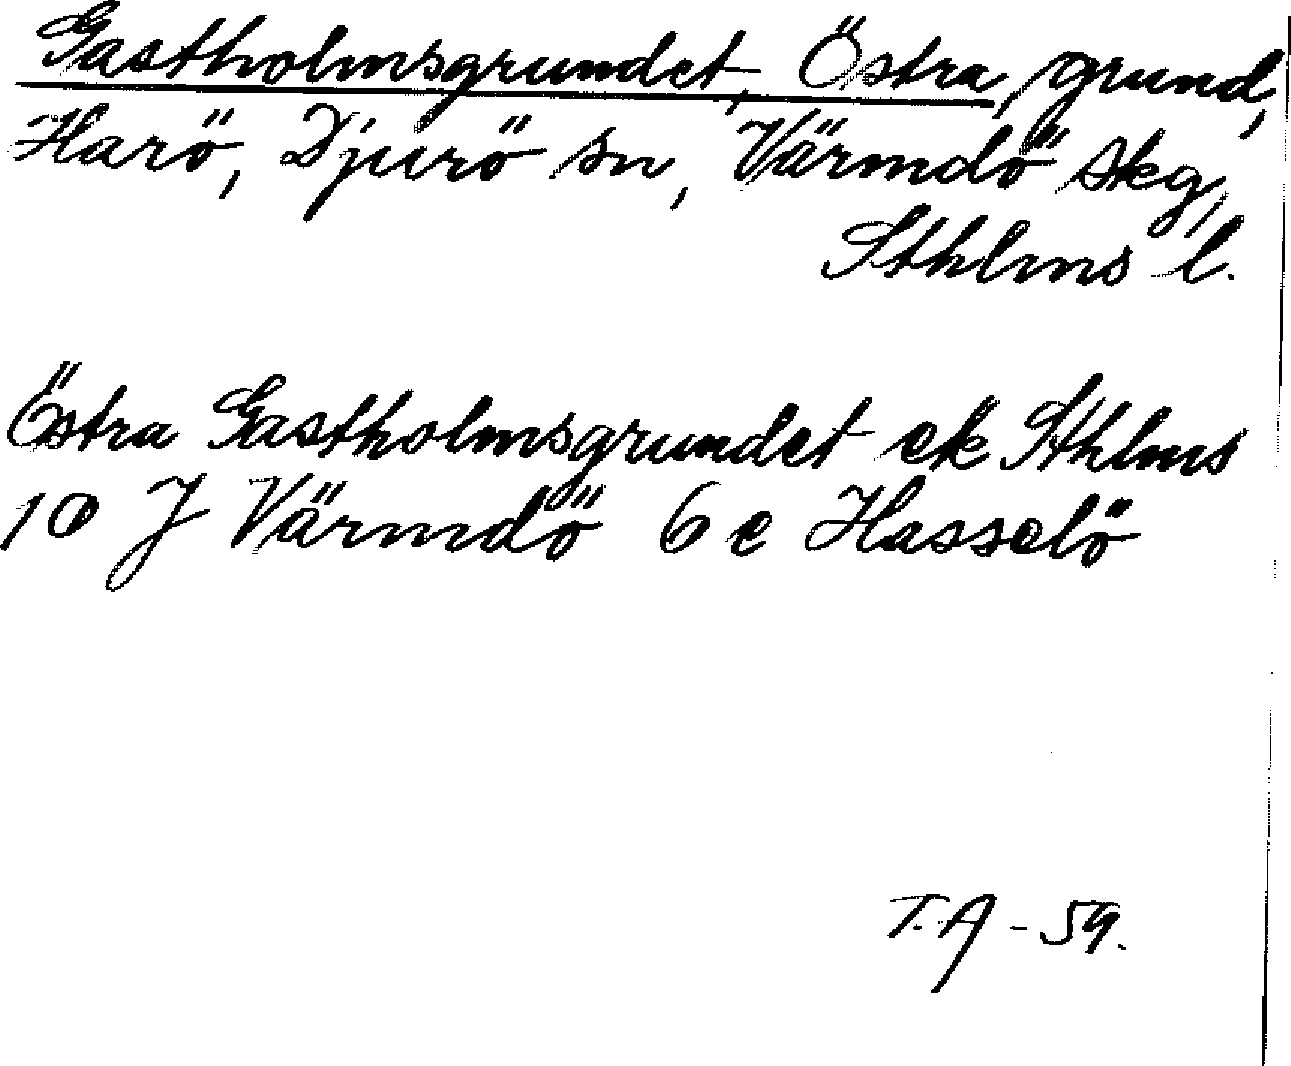 Gastholmsgrundet, Östra, grund,
Harö, Djurö sn, Värmdö skg,
Sthlms l.
Östra Gastholmsgrundet ek Sthlms
10 J Värmdö 6 e Hasselö
T.A - 59.